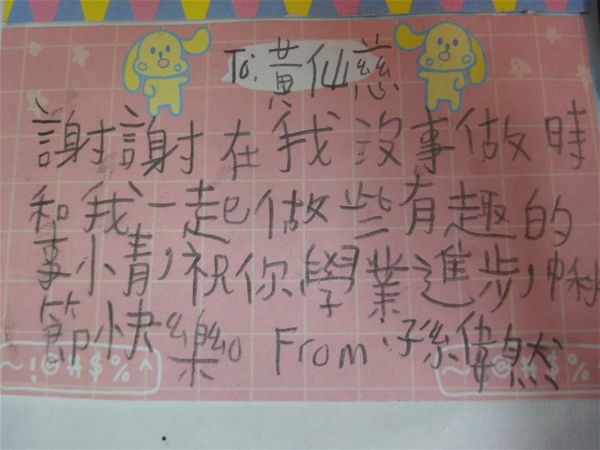 To:黃仙慈
謝謝在我沒事做時
和我一起做些有趣的
事情,祝你學業進步,中秋
節快樂。From:孫偉然
~!@#$%^
~!@#$%^